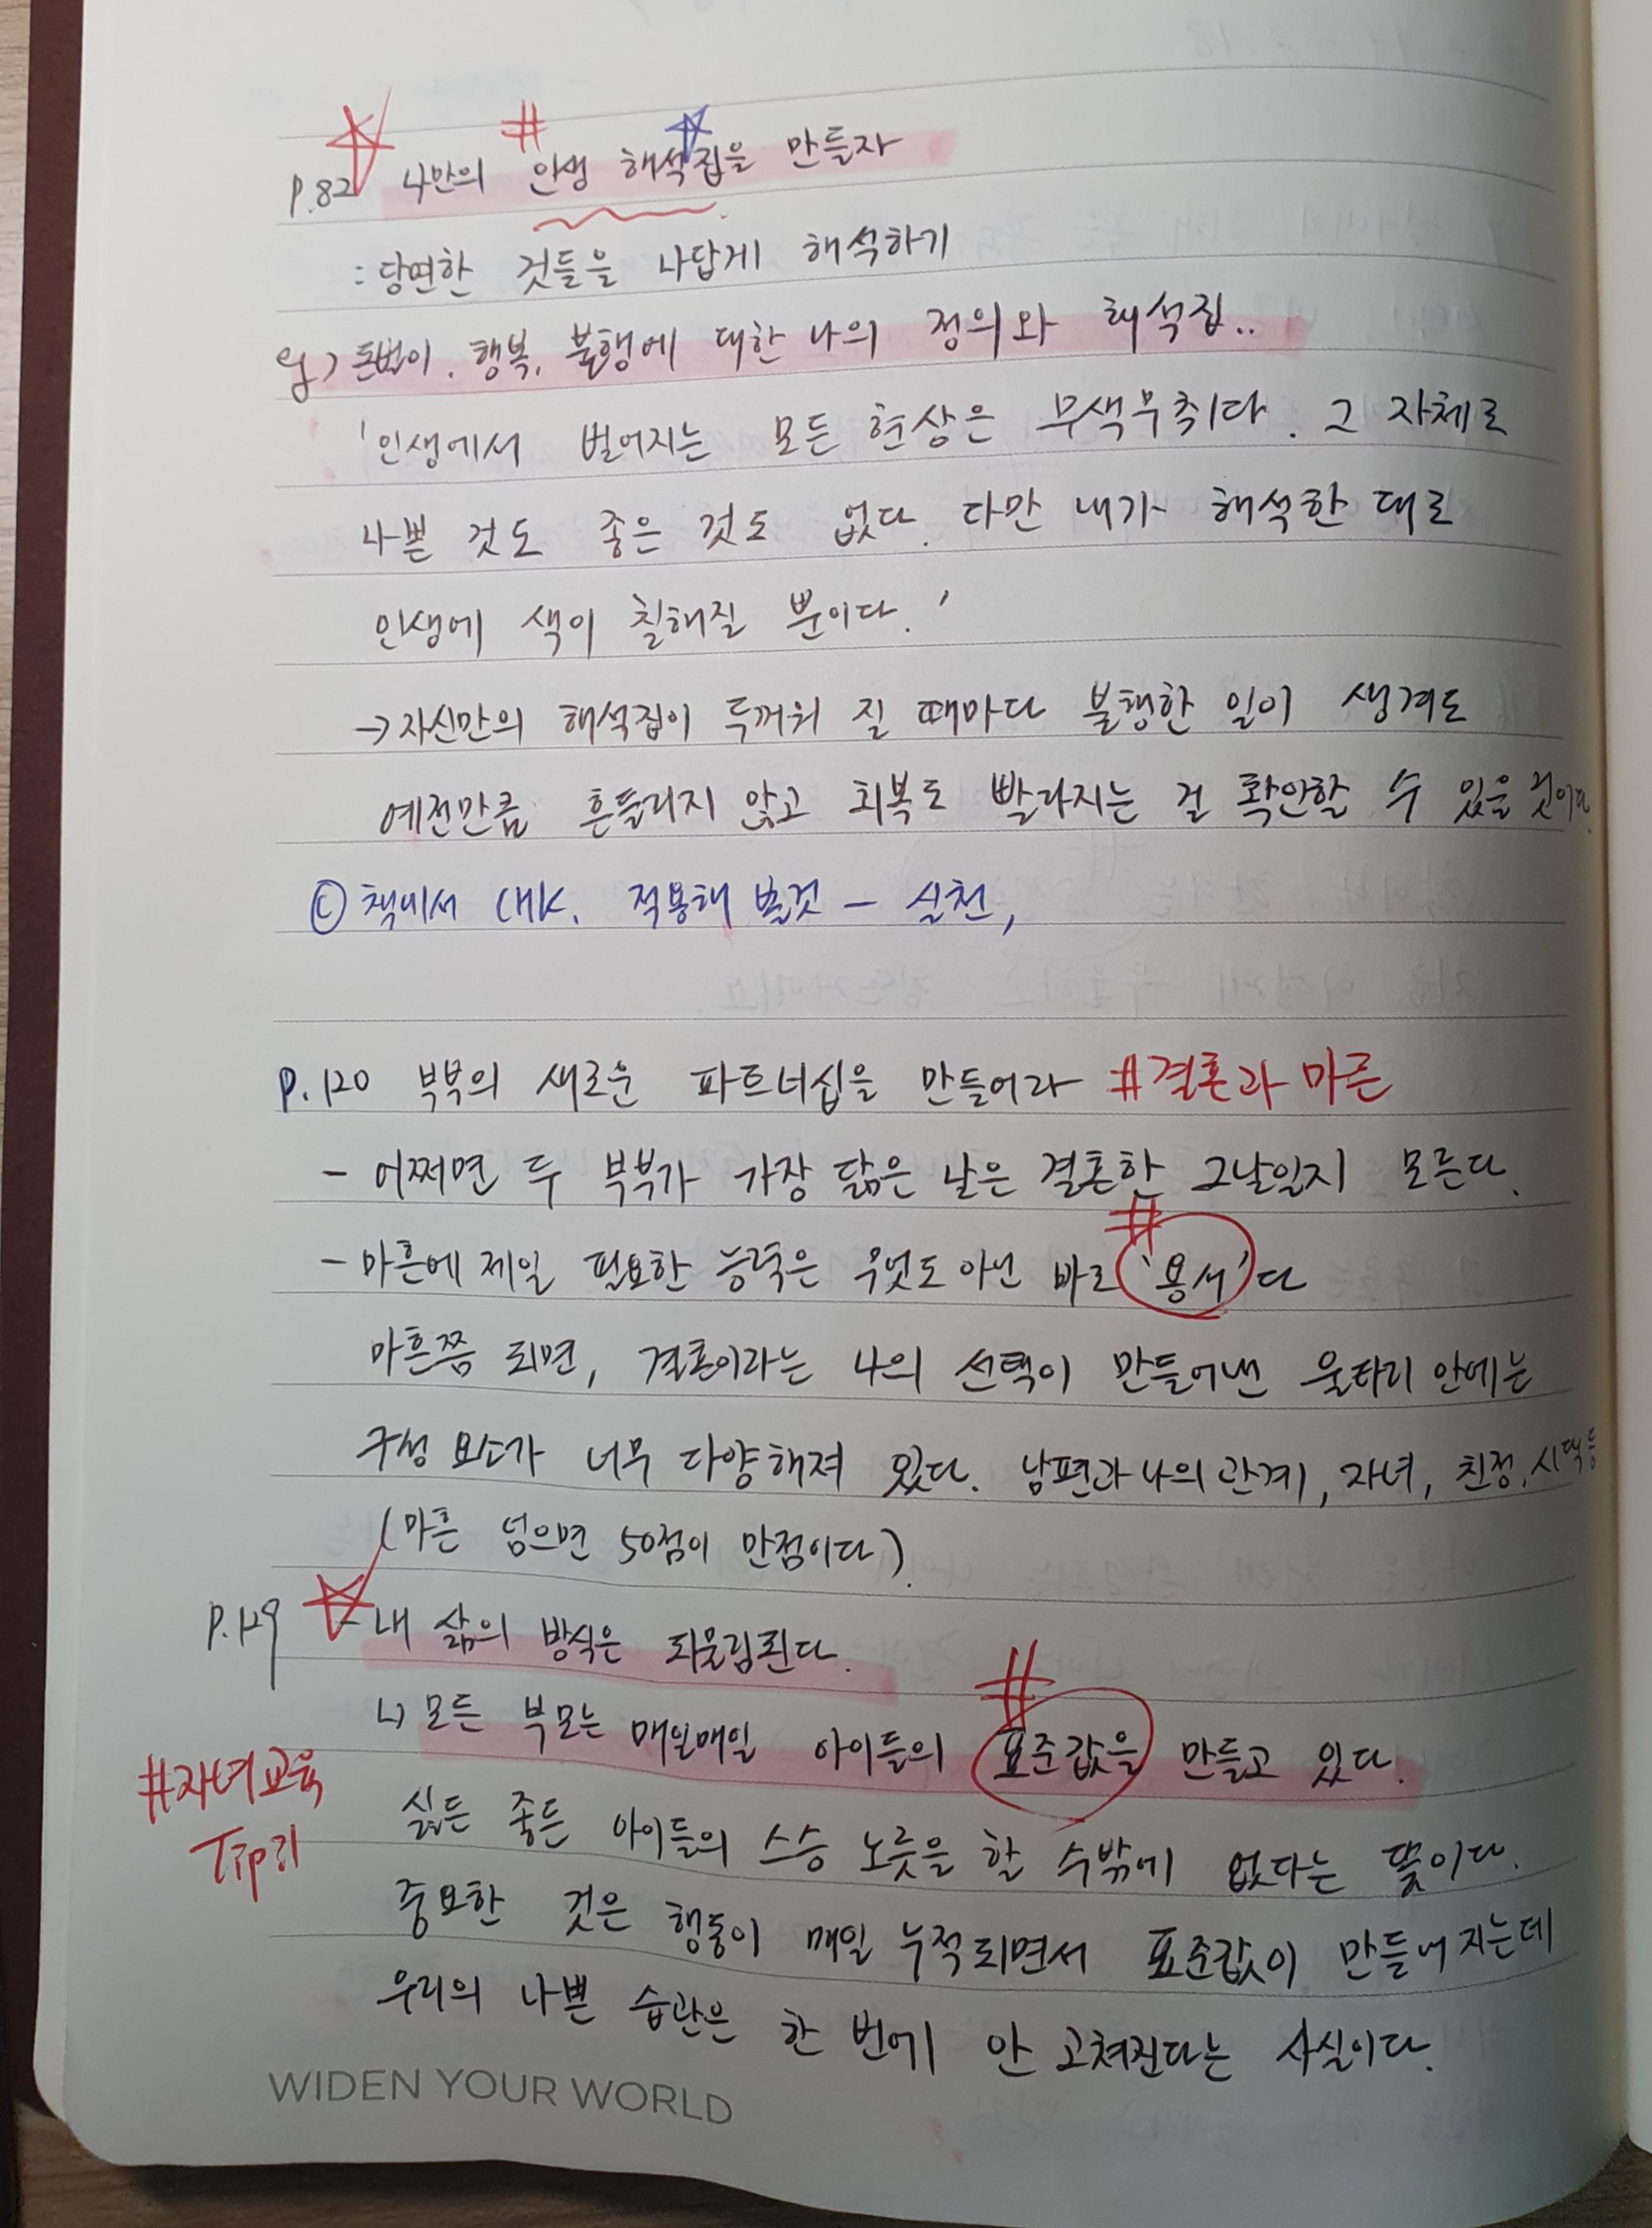 p.82 나만의 #인생 해석집을 만들자
: 당면한 것들을 나답게 해석하기
예) 돈벌이. 행복, 불행에 대한 나의 정의와 해석집..
'인생에서 벌어지는 모든 현상은 무색무취다. 그 자체로
나쁜 것도 좋은 것도 없다. 다만 내가 해석한 대로
인생에 색이 칠해질 뿐이다.'
→ 자신만의 해석집이 두꺼워 질 때마다 불행한 일이 생겨도
예전만큼 흔들리지 않고 회복도 빨라지는 걸 확인할 수 있을 것이다.
ⓒ 책에서 CHK. 적용해 볼것 - 실천,
p.120 부부의 새로운 파트너십을 만들어라 #결혼과 마흔
- 어쩌면 두 부부가 가장 닮은 날은 결혼한 그날일지 모른다.
- 마흔에 제일 필요한 능력은 무엇도 아닌 바로 #'용서'다
마흔쯤 되면, 결혼이라는 나의 선택이 만들어낸 울타리 안에는
구성 요소가 너무 다양해져 있다. 남편과 나의 관계, 자녀, 친정, 시댁 등
(마흔 넘으면 50점이 만점이다).
p.129 - 내 삶의 방식은 되물림된다.
↳ 모든 부모는 매일매일 아이들의 #표준값을 만들고 있다.
#자녀교육
싫든 좋든 아이들의 스승 노릇을 할 수밖에 없다는 뜻이다.
중요한 것은 행동이 매일 누적되면서 표준값이 만들어지는데
우리의 나쁜 습관은 한 번에 안 고쳐진다는 사실이다.
WIDEN YOUR WORLD